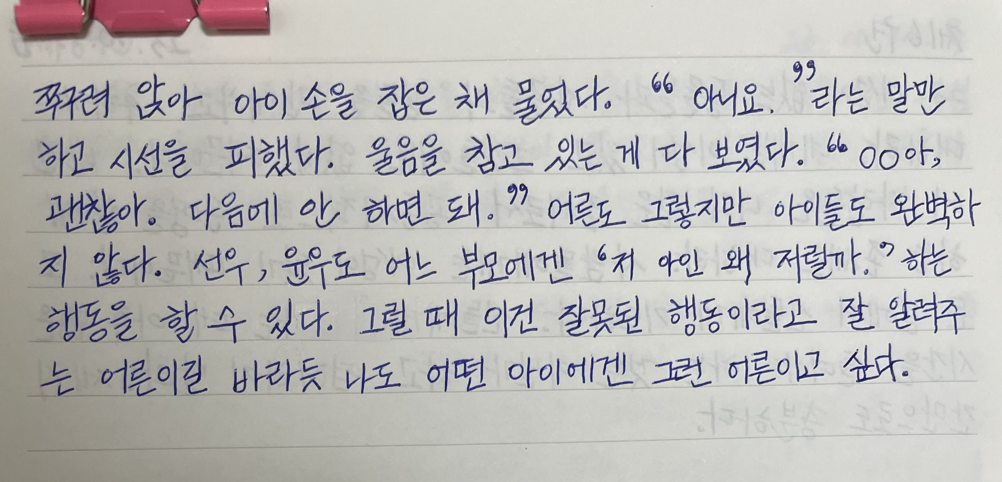 쭈구려 앉아 아이 손을 잡은 채 물었다. “아니요.”라는 말만
하고 시선을 피했다. 울음을 참고 있는 게 다 보였다. “OO아,
괜찮아. 다음에 안 하면 돼.” 어른도 그렇지만 아이들도 완벽하
지 않다. 선우, 윤우도 어느 부모에겐 “저 아인 왜 저럴까.” 하는
행동을 할 수 있다. 그럴 때 이건 잘못된 행동이라고 잘 알려주
는 어른이길 바라듯 나도 어떤 아이에겐 그런 어른이고 싶다.